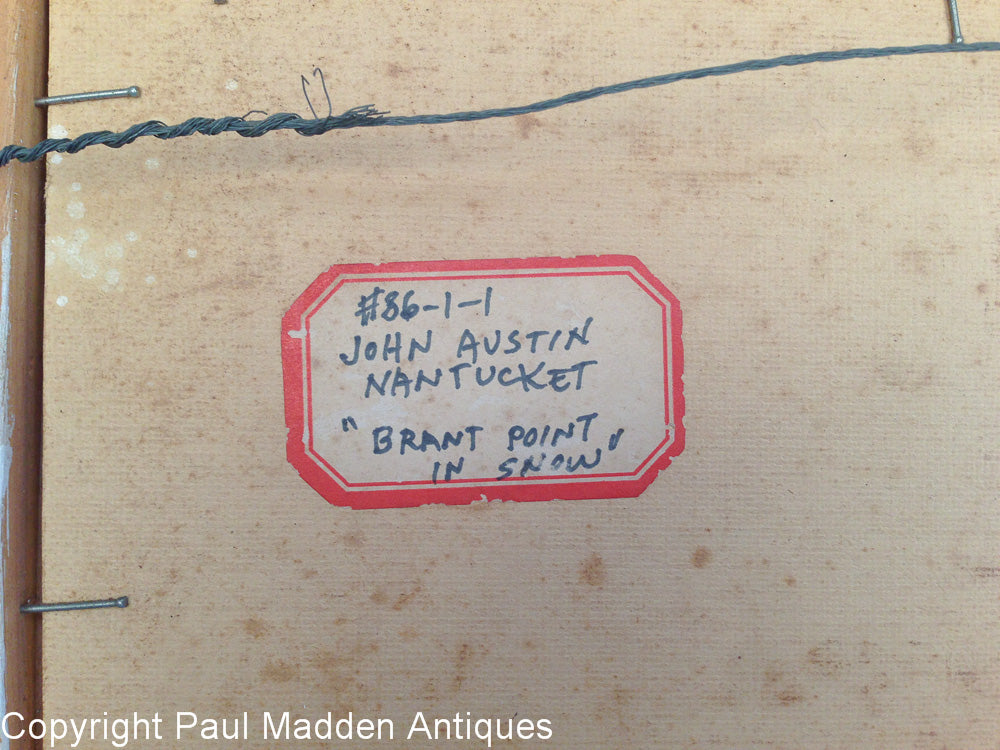 #86-1-1
JOHN AUSTIN
NANTUCKET
"BRANT POINT
IN SNOW"
Copyright Paul Madden Antiques